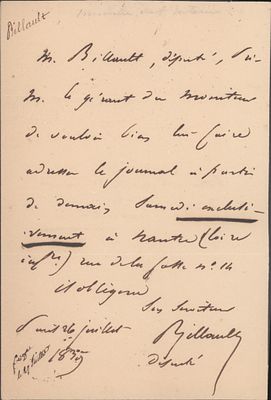 Billault
M. Billault, député, prie
M. le gérant du Moniteur
de vouloir bien lui faire
adresser le journal à partir
de demain samedi exclusi-
vement à Nantes (Loire
infre) rue de la fosse no 14
il obligera
Son serviteur
Billault
député
26 juillet